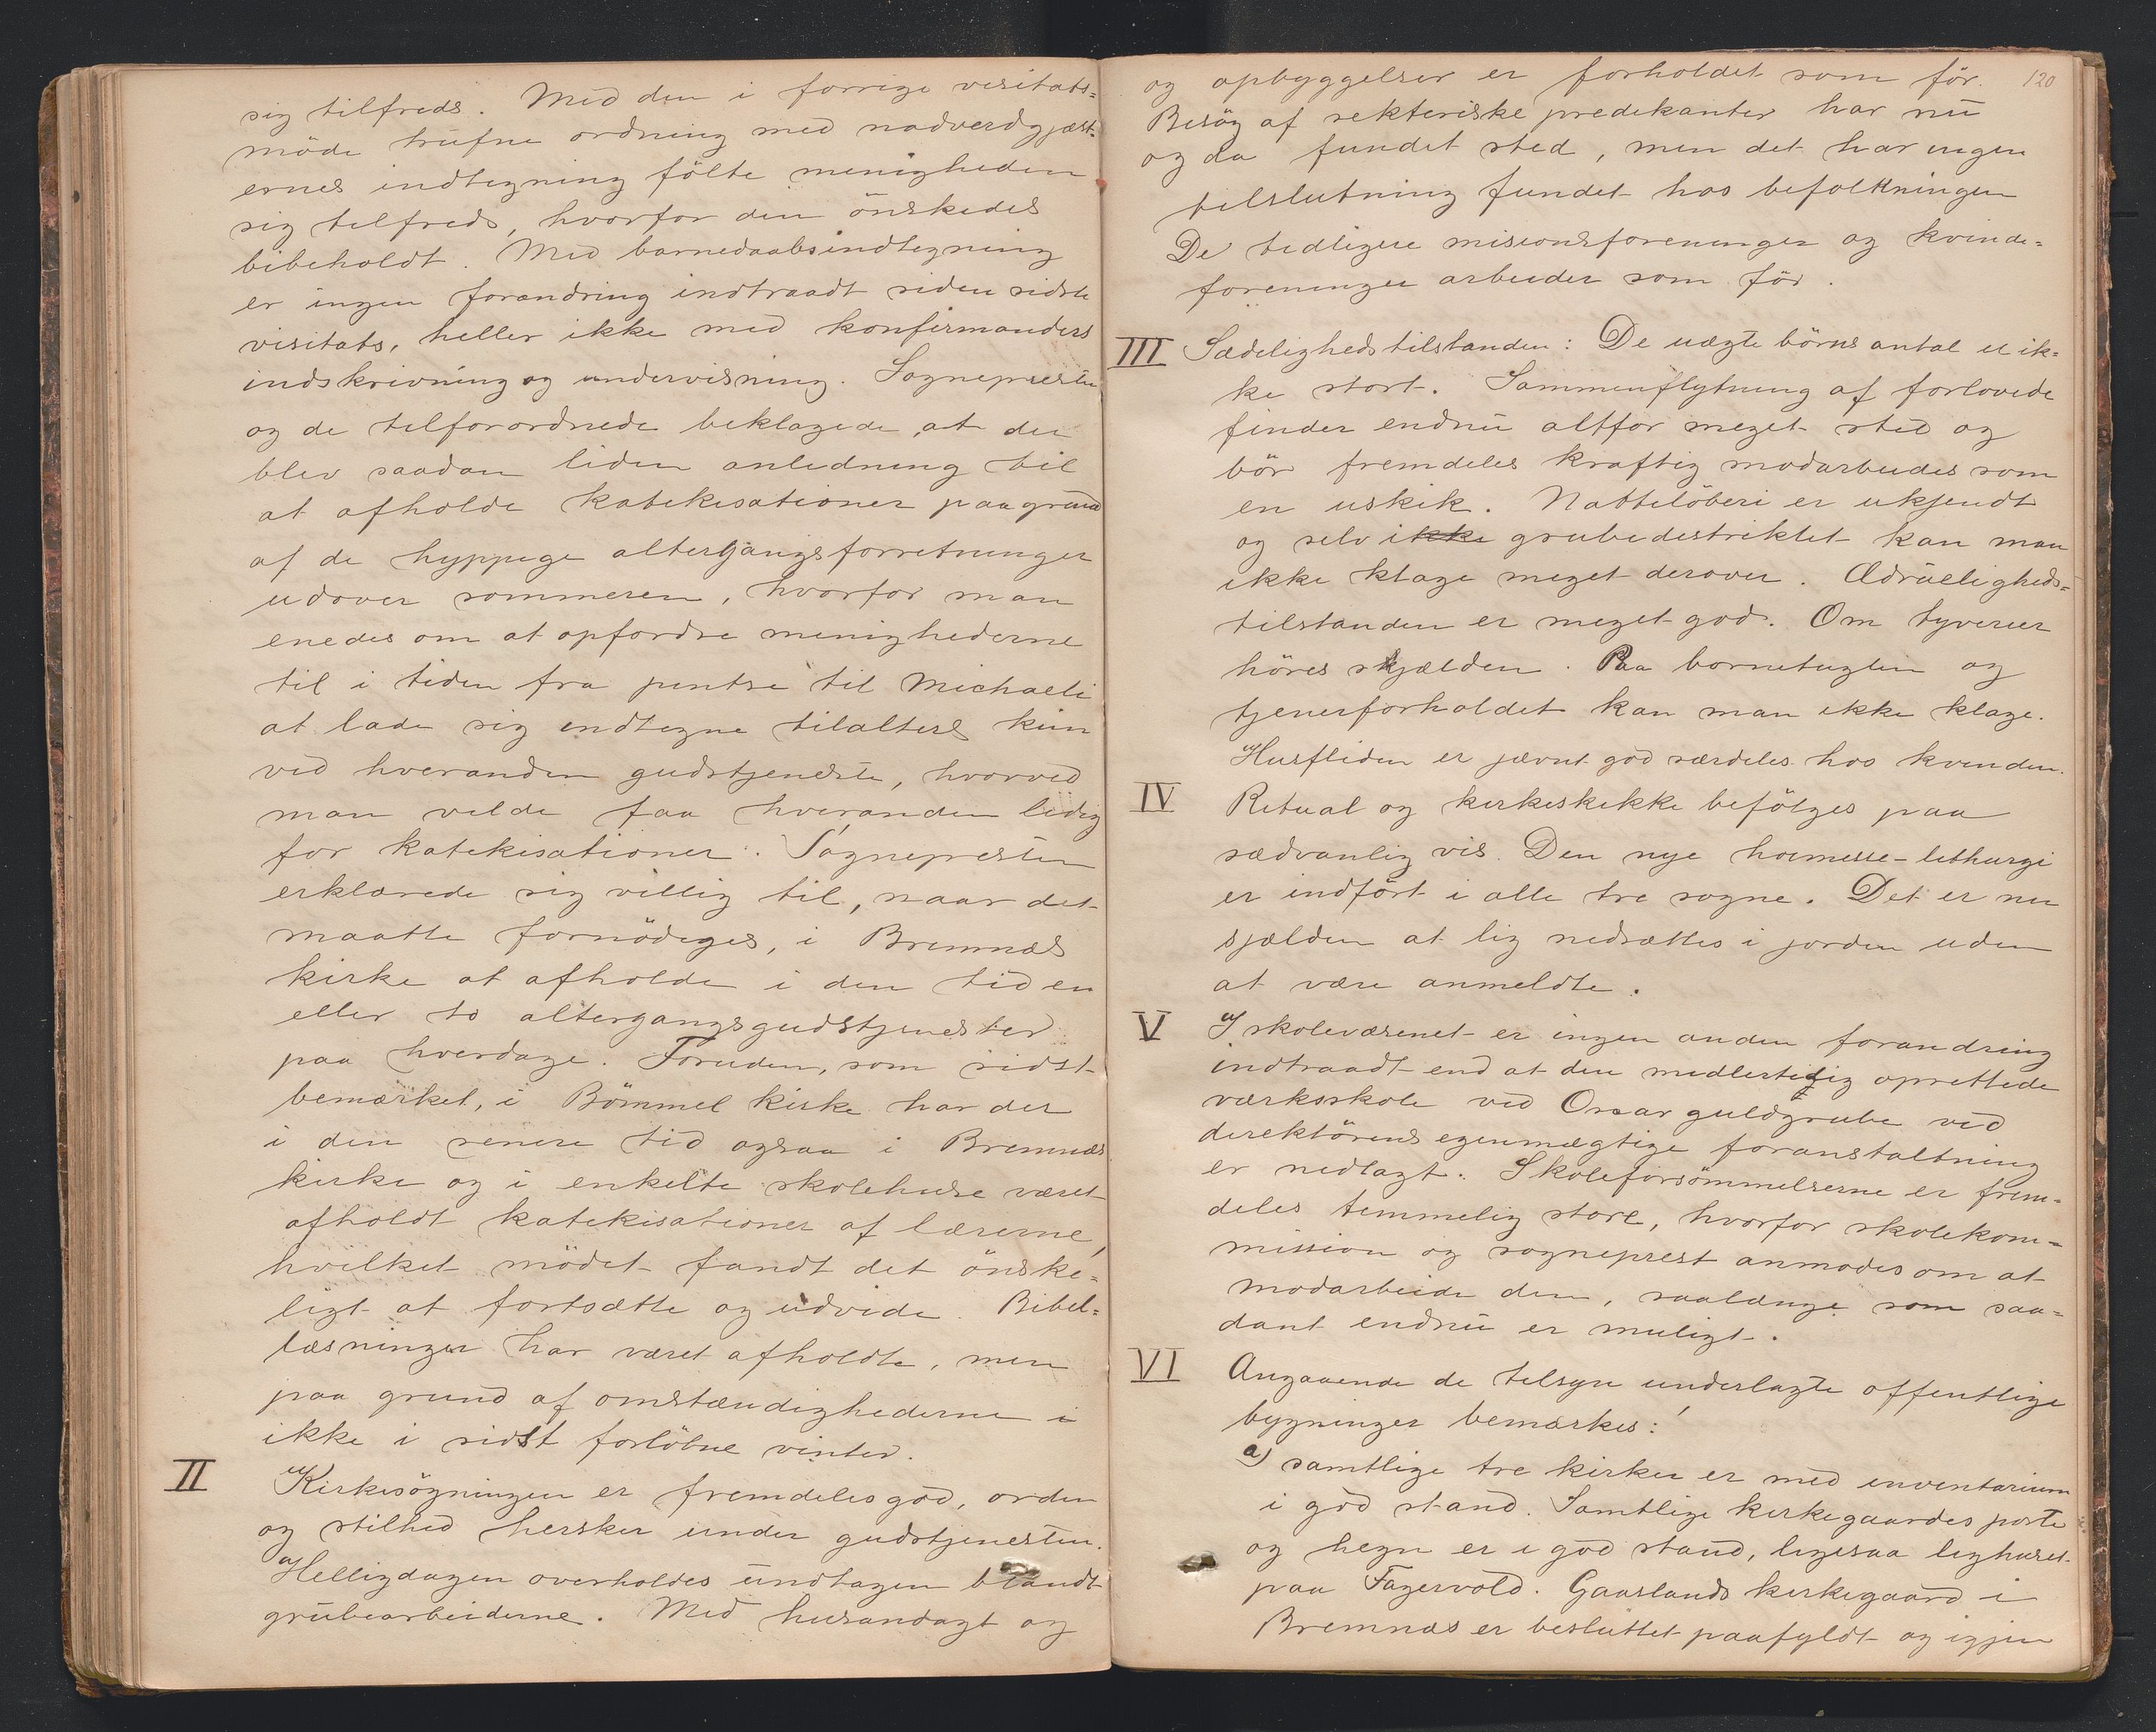 sig tilfreds. Med den i forrige visitats=
möde trufne ordning med nadverdgjæst-
ernes indtegning fölte menigheden
sig tilfreds, hvorfor den önskedes
bibeholdt. Med barnedaabsindtegning
er ingen forandring indtraadt siden sidste
visitats, heller ikke med konfirmanders
indskrivning og undervisning. Sognepresten
og de tilforordnede beklagede, at der
blev saadan liden anledning til
at afholde katekisationer paa grund
af de hyppige altergangsforretninger
udover sommeren, hvorfor man
enedes om at opfordre menighederne
til i tiden fra pintse til Michaeli
at lade sig indtegne tilalters kun
ved hveranden gudstjeneste, hvorved
man vilde faa hveranden ledig
for katekisationer. Sognepresten
erklærede sig villig til, naar det
maatte fornödiges, i Bremnæs
kirke at afholde i den tid en
eller to altergangsgudstjenester
paa hverdage. Foruden, som sidst
bemærket, i Bömmel kirke har der
i den senere tid ogsaa i Bremnæs
kirke og i enkelte skolehuse været
afholdt katekisationer af lærerne,
hvilket mödet fandt det önske=
ligt at fortsætte og udvide. Bibel=
læsninger har været afholdte, men
paa grund af omstændighederne i
ikke i sidst forlöbne vinter.
II Kirkesögningen er fremdeles god, orden
og stilhed hersker under gudstjenesten.
Helligdagen overholdes undtagen blandt
grubearbeiderne. Med husandagt og
120
og opbyggelser er forholdet som för.
Besög af sekteriske predikanter har nu
og da fundet sted, men det har ingen
tilslutning fundet hos befolkningen
De tidligere misionsforeninger og kvinde=
foreninger arbeider som för.
III Sædelighedstilstanden: De uægte börns antal er ik=
ke stort. Sammenflytning af forlovede
finder endnu altfor meget sted og
bör fremdeles kraftig modarbeides som
en uskik. Natteløberi er ukjendt
og selv ikke grubedistriktet kan man
ikke klage meget derover. Ædrueligheds=
tilstanden er meget god. Om tyverier
höres skjælden. Paa bornetugten og
tjenerforholdet kan man ikke klage.
Husfliden er jævnt god særdeles hos kvinden.
IV Ritual og kirkeskikke befölges paa
sædvanlig vis. Den nye hoimesse-lithurgi
er indfört i alle tre sogne. Det er nu
sjælden at lig nedsættes i jorden uden
at være anmeldte.
V I skolevæsenet er ingen anden forandring
indtraadt end at den midlertidig oprettede
værksskole ved Oscar guldgrube ved
direktörens egenmægtige foranstaltning
er nedlagt. Skoleforsömmelserne er frem=
deles temmelig store, hvorfor skolekom=
mission og sogneprest anmodes om at
modarbeide dem, saalænge som saa=
dant endnu er muligt.
VI Angaaende de tilsyn underlagte offentlige
bygninger bemærkes:
a) samtlige tre kirker er med inventarium
i god stand. Samtlige kirkegaardes porte
og hegn er i god stand, ligesaa lighuset
paa Fagervold. Gaaslands kirkegaard i
Bremnæs er besluttet paafyldt og igjen